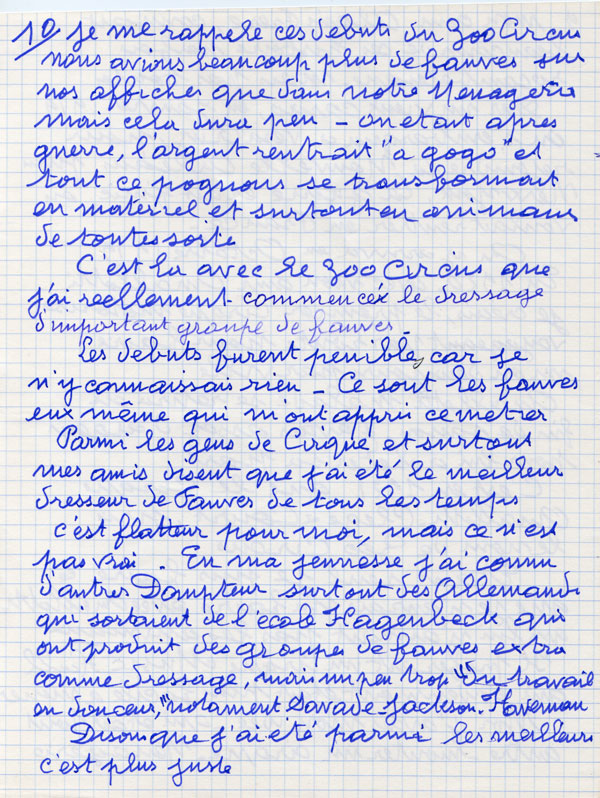 10 Je me rappele ces debuts du Zoo Circus
nous avions beaucoup plus de fauves sur
nos affiches que dans notre Menagerie
mais cela dura peu – on etait apres
guerre, l'argent rentrait "a gogo" et
tout ce pognons se transformait
en matériel et surtout en animaux
de toutes sorte
C'est la avec le Zoo Circus que
j'ai reellement commencéx le dressage
d'important groupe de fauves –
Les debuts furent penible, car je
n'y connaissais rien – Ce sont les fauves
eux même qui m'ont appris ce metier
Parmi les gens de Cirque et surtout
mes amis disent que j'ai été le meilleur
dresseur de Fauves de tous les temps
c'est flatteur pour moi, mais ce n'est
pas vrai. En ma jeunesse j'ai connu
d'autres Dompteur surtout des Allemands
qui sortaient de l'école Hagenbeck qui
ont produit des groupes de fauves extra
comme dressage, mais un peu trop "du travail
en douceur," notament Savade Jackson. Haveman
Disons que j'ai été parmi les meilleurs
c'est plus juste